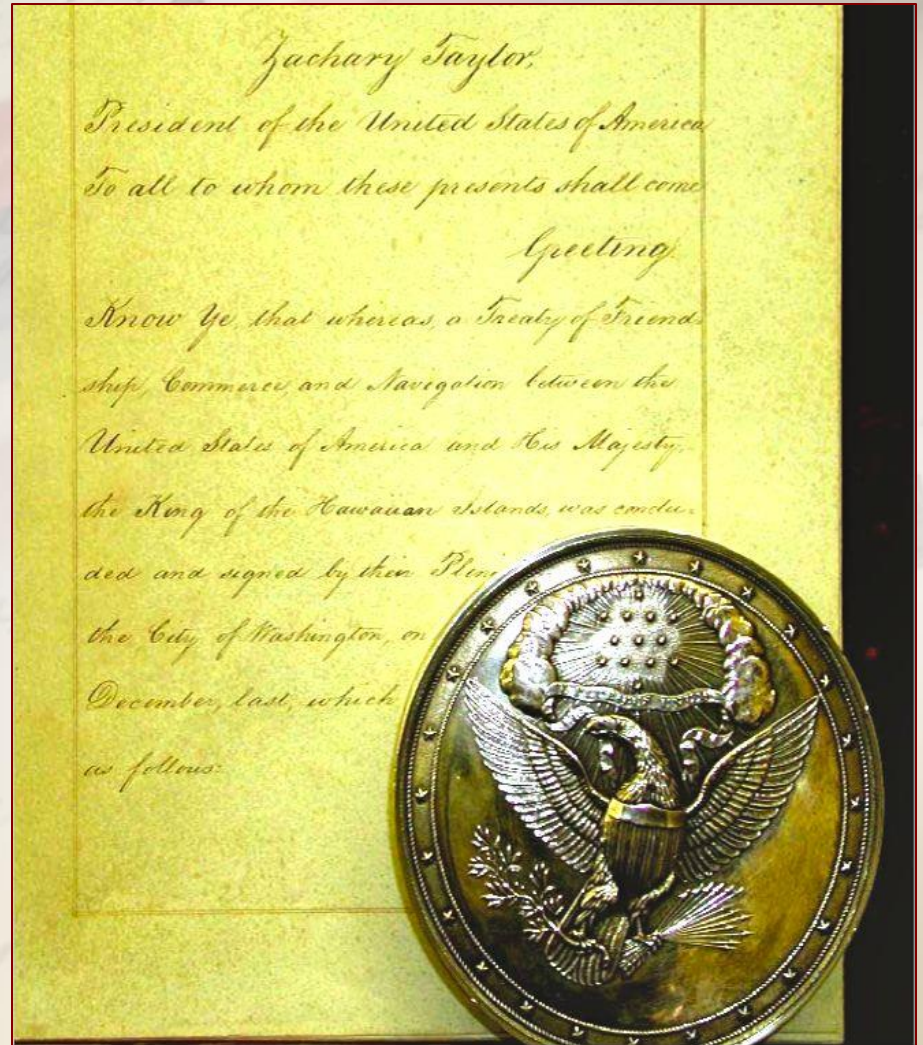 Zachary Taylor,
President of the United States of America
To all to whom these presents shall come
Greeting.
Know Ye, that whereas, a Treaty of Friend-
ship, Commerce, and Navigation between the
United States of America and His Majesty,
the King of the Hawaiian Islands, was conclu-
ded and signed by their Pleni
the City of Washington, on
December, last, which
as follows: